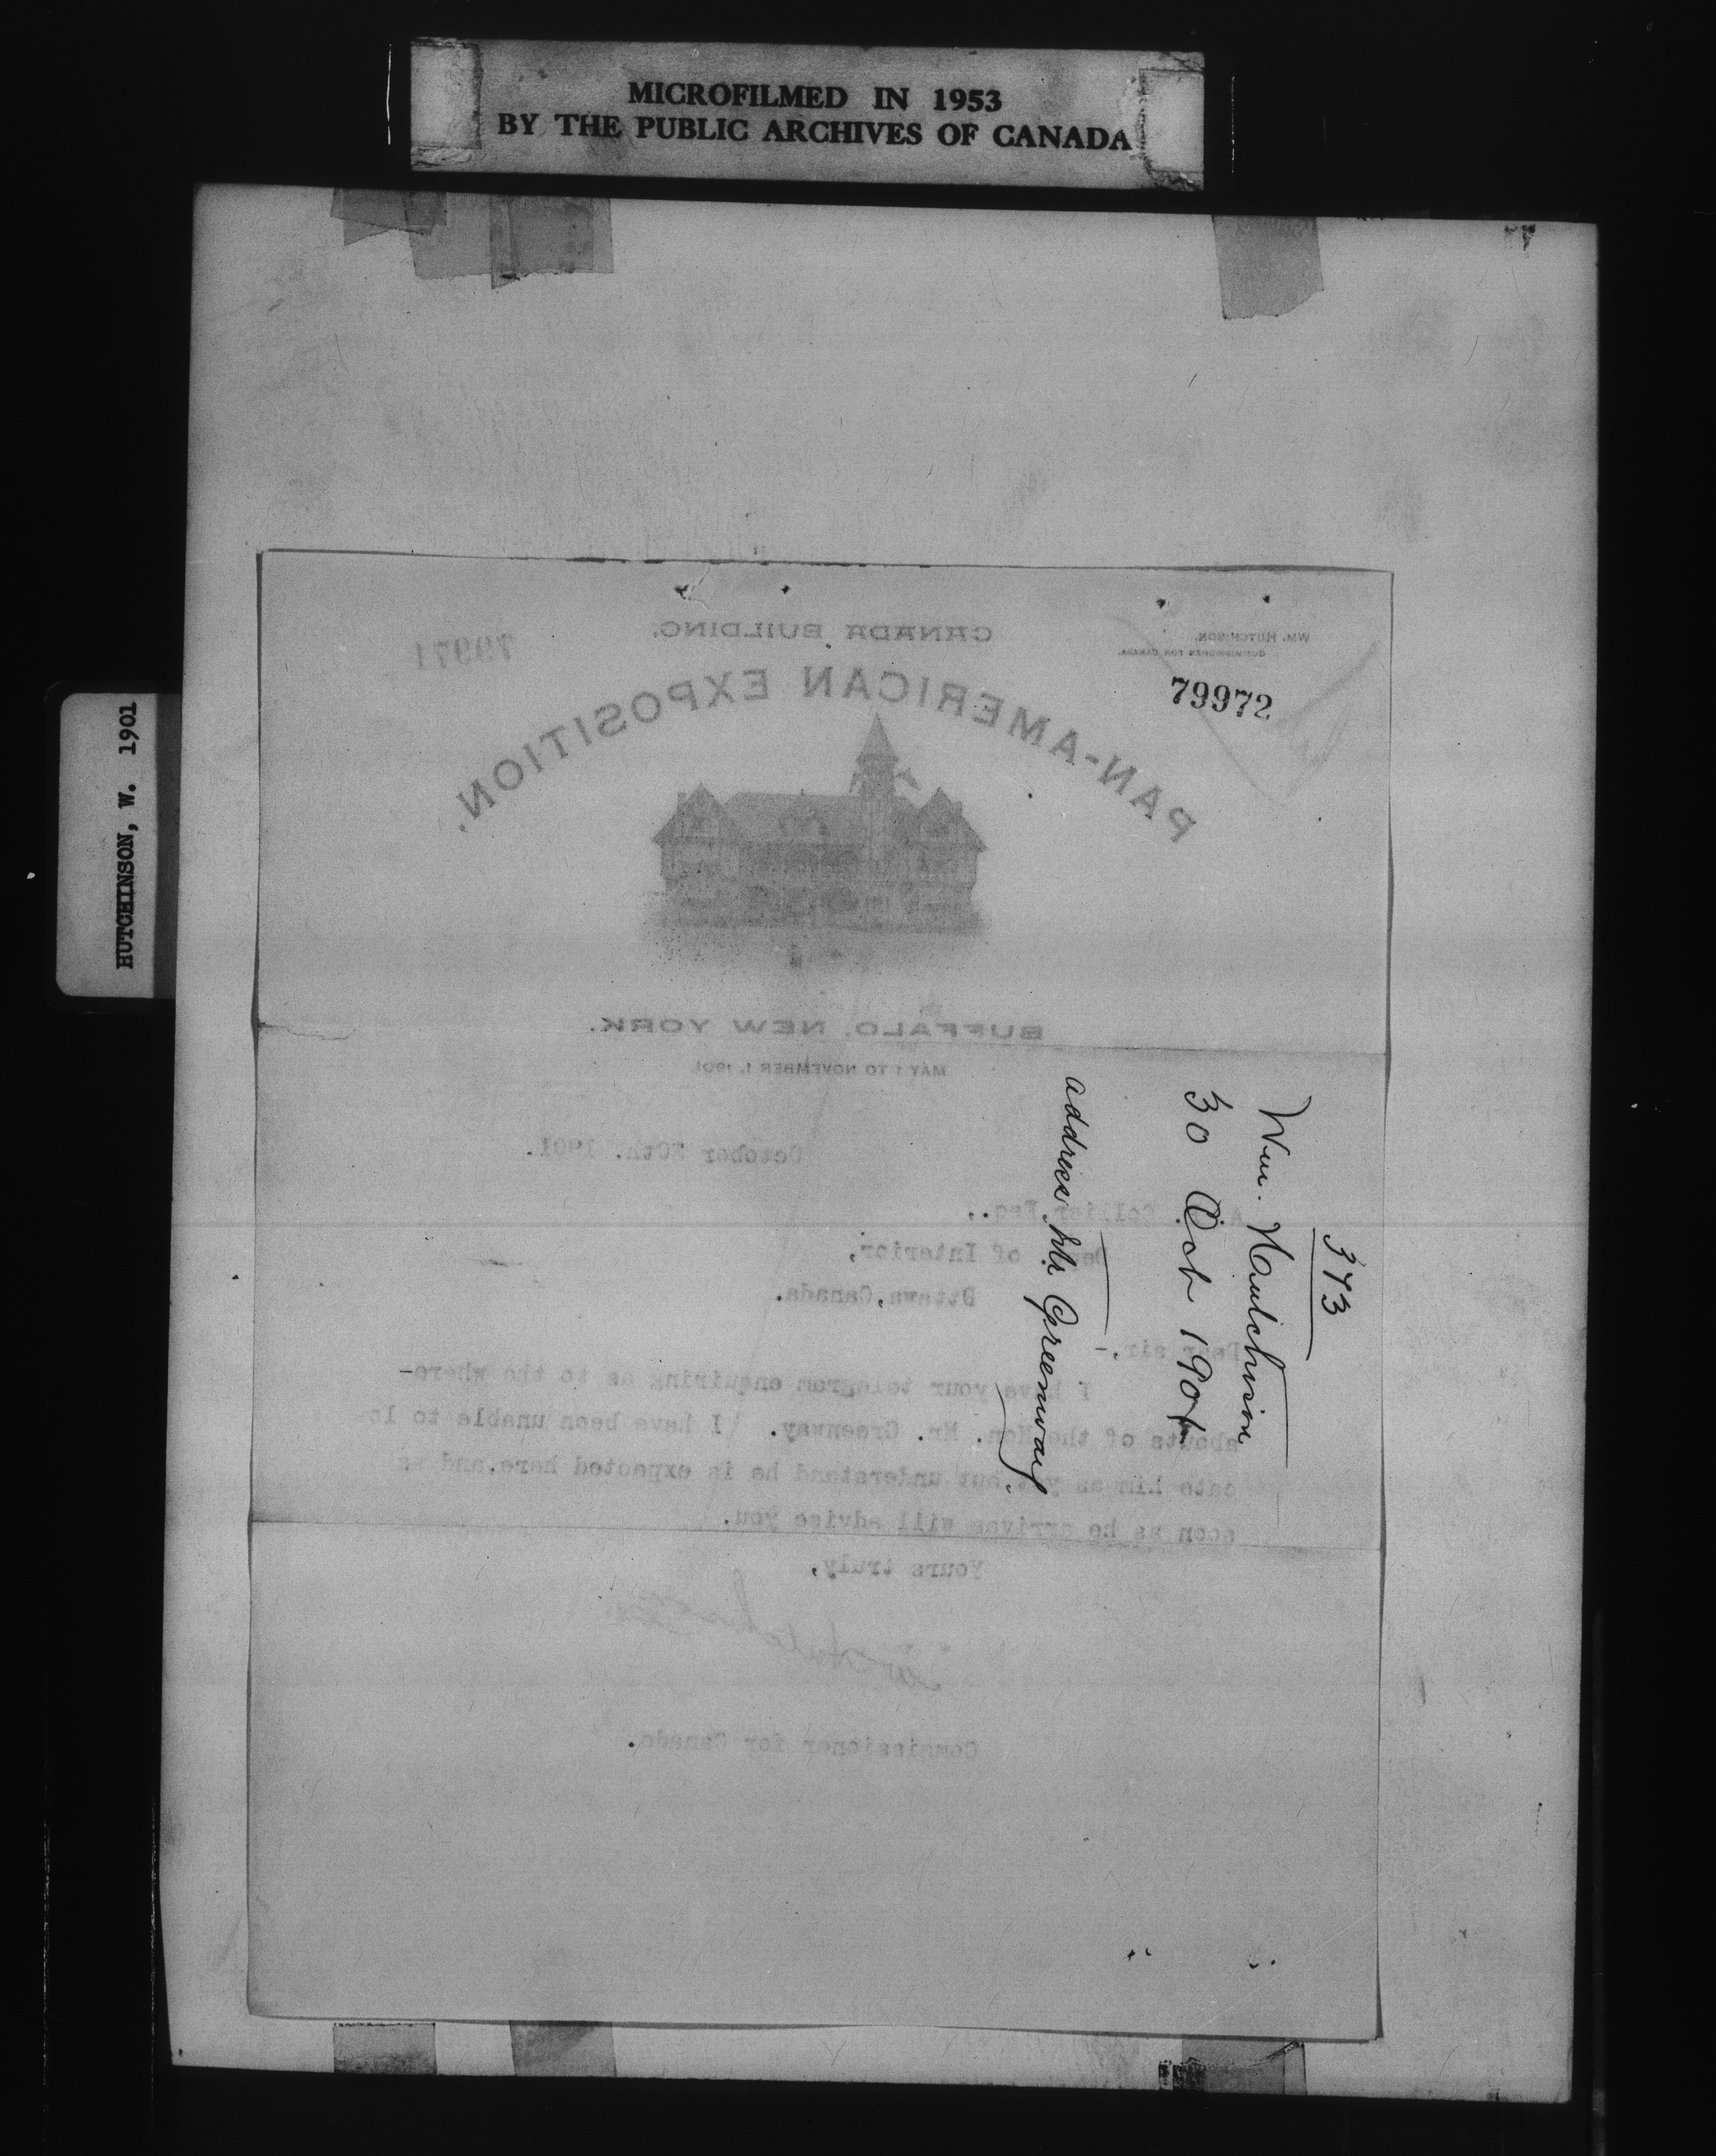 MICROFILMED IN 1953
BY THE PUBLIC ARCHIVES OF CANADA
HUTCHINSON, W. 1901
CANADA BUILDING.
79971
WM. HUTCHISON,
COMMISSIONER FOR CANADA.
79972
PAN-AMERICAN EXPOSITION.
BUFFALO, NEW YORK.
MAY 1 TO NOVEMBER 1, 1901
373
Wm. Hutchison
30 Oct 1901
address Mr Greenway.
October 30th. 1901.
Collier Esq.,
of Interior,
Ottawa, Canada.
Dear sir,-
I have your telegram enquiring as to the where-
abouts of the Hon. Mr. Greenway. I have been unable to lo-
cate him as yet but understand he is expected here, and as
soon as he arrives will advise you.
Yours truly,
W Hutchison
Commissioner for Canada.